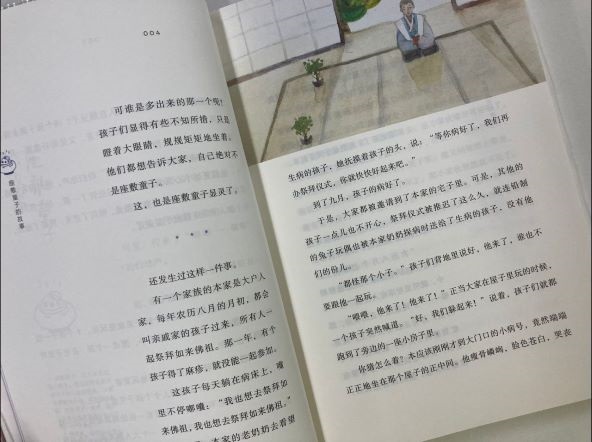 004
可谁是多出来的那一个呢？
孩子们显得有些不知所措，只是
瞪着大眼睛，规规矩矩地坐着。
他们都想告诉大家，自己绝对不
是座敷童子。
这，也是座敷童子显灵了。
座敷童子的故事
还发生过这样一件事。
有一个家族的本家是大户人
家，每年农历八月的月初，都会
叫亲戚家的孩子过来，所有人一
起祭拜如来佛祖。那一年，有个
孩子得了麻疹，就没能一起参加。
这孩子每天躺在病床上，嘴
里不停嘟囔：“我也想去祭拜如
来佛祖，我也想去祭拜如来佛祖。”
本家的老奶奶去看望
生病的孩子，她抚摸着孩子的头，说：“等你病好了，我们再
办祭拜仪式，你就快快好起来吧。”
到了九月，孩子的病好了。
于是，大家都被邀请到了本家的宅子里。可是，其他的
孩子一点儿也不开心，祭拜仪式被推迟了这么久，就连铅制
的兔子玩偶也被本家奶奶探病时送给了生病的孩子，没有他
们的份儿。
“都怪那个小子。”孩子们背地里说好，他来了，谁也不
要跟他一起玩。
“喂喂，他来了！他来了！”正当大家在屋子里玩的时候，
一个孩子突然喊道。“好，我们躲起来！”说着，孩子们就都
跑到了旁边的一座小房子里。
你猜怎么着？本应该刚刚才到大门口的小病号，竟然端端
正正地坐在那个屋子的正中间。他瘦骨嶙峋，脸色苍白，哭丧